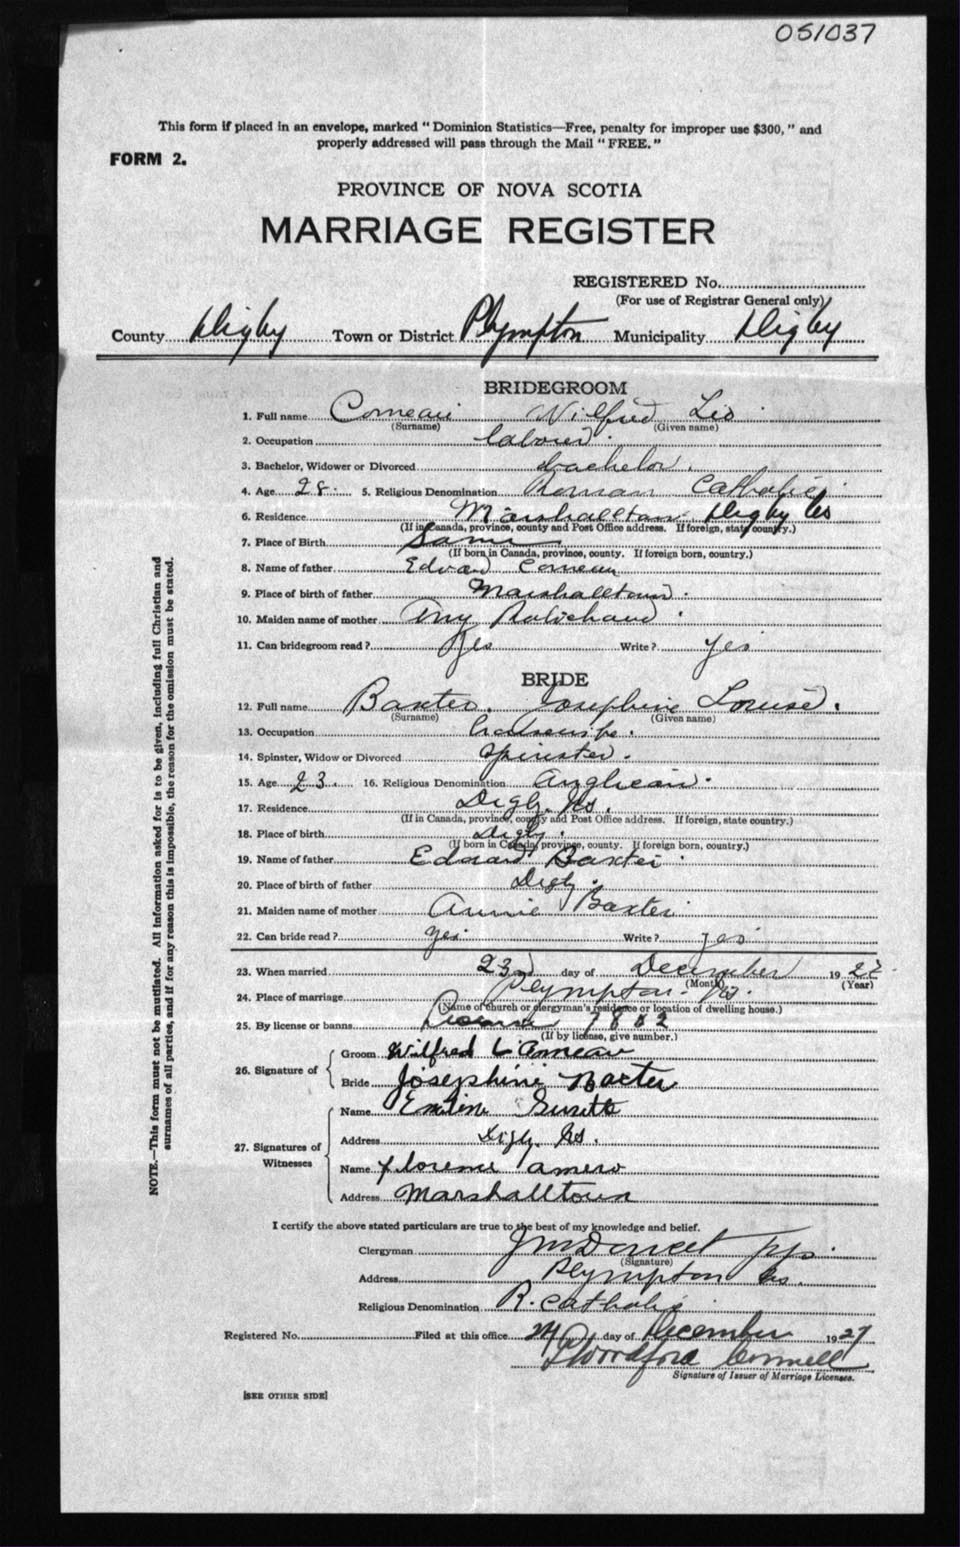 051037
This form if placed in an envelope, marked "Dominion Statistics—Free, penalty for improper use $300," and
properly addressed will pass through the Mail "FREE."
FORM 2.
PROVINCE OF NOVA SCOTIA
MARRIAGE REGISTER
REGISTERED No.
(For use of Registrar General only)
County Digby Town or District Plympton Municipality Digby
BRIDEGROOM
1. Full name Comeau Wilfred Leo
(Surname) (Given name)
2. Occupation labourer
3. Bachelor, Widower or Divorced bachelor.
4. Age 28. 5. Religious Denomination Roman Catholic
6. Residence Marshalltown Digby Co
(If in Canada, province, county and Post Office address. If foreign, state country.)
7. Place of Birth Same
(If born in Canada, province, county. If foreign born, country.)
8. Name of father Edward Comeau
9. Place of birth of father Marshalltown.
10. Maiden name of mother Amy Robichaud
11. Can bridegroom read? Yes Write? yes
BRIDE
12. Full name Baxter. Josephine Louise.
(Surname) (Given name)
13. Occupation housewife.
14. Spinster, Widow or Divorced Spinster.
15. Age 23. 16. Religious Denomination Anglican.
17. Residence Digby. NS.
(If in Canada, province, county and Post Office address. If foreign, state country.)
18. Place of birth Digby.
(If born in Canada, province, county. If foreign born, country.)
19. Name of father Edward Baxter
20. Place of birth of father Digby.
21. Maiden name of mother Annie Baxter
22. Can bride read? yes Write? yes
23. When married 23rd day of December 1927
(Month) (Year)
24. Place of marriage Plympton. NS.
(Name of church or clergyman's residence or location of dwelling house.)
25. By license or banns License 7882
(If by license, give number.)
26. Signature of
Groom Wilfred L Comeau
Bride Josephine Baxter
27. Signatures of Witnesses
Name
Address Digby. NS.
Name Florence Amero
Address Marshalltown
I certify the above stated particulars are true to the best of my knowledge and belief.
Clergyman J M Doucet pp.
(Signature)
Address Plympton NS.
Religious Denomination R. Catholic
Registered No. Filed at this office 24 day of December 1927
Signature of Issuer of Marriage Licenses.
[SEE OTHER SIDE]
NOTE.—This form must not be mutilated. All information asked for is to be given, including full Christian and
surnames of all parties, and if for any reason this is impossible, the reason for the omission must be stated.